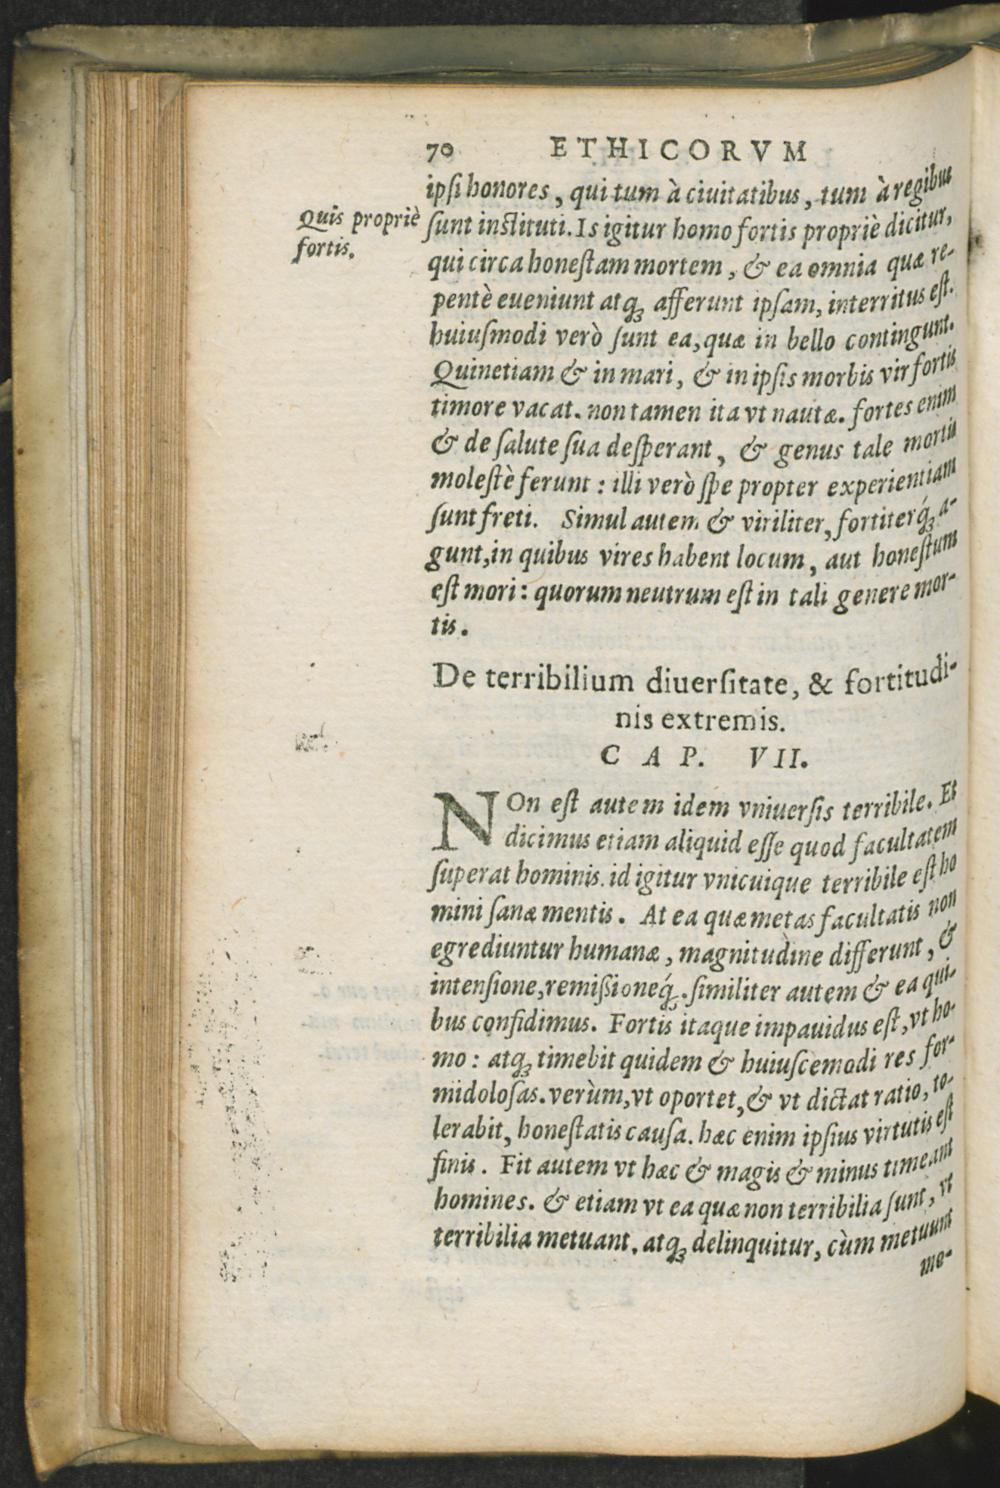 70 ETHICORVM
ipſi honores, qui tum à ciuitatibus, tum à regibus
Quis propriè
fortis.
ſunt inſtituti. Is igitur homo fortis propriè dicitur,
qui circa honeſtam mortem, & ea omnia quæ re-
pentè eueniunt atq; afferunt ipſam, interritus eſt.
huiuſmodi verò ſunt ea, quæ in bello contingunt.
Quinetiam & in mari, & in ipſis morbis vir fortis
timore vacat. non tamen ita vt nautæ. fortes enim
& de ſalute ſua deſperant, & genus tale mortis
moleſtè ferunt: illi verò ſpe propter experientiam
ſunt freti. Simul autem & viriliter, fortiterq́; a-
gunt, in quibus vires habent locum, aut honeſtum
eſt mori: quorum neutrum eſt in tali genere mor-
tis.
De terribilium diuerſitate, & fortitudi-
nis extremis.
CAP. VII.
NOn eſt autem idem vniuerſis terribile. Et
dicimus etiam aliquid eſſe quod facultatem
ſuperat hominis. id igitur vnicuique terribile eſt ho
mini ſanæ mentis. At ea quæ metas facultatis non
egrediuntur humanæ, magnitudine differunt, &
intenſione, remiſsioneq́;. ſimiliter autem & ea qui-
bus confidimus. Fortis itaque impauidus eſt, vt ho-
mo: atq; timebit quidem & huiuſcemodi res for-
midoloſas. verùm, vt oportet, & vt dictat ratio, to-
lerabit, honeſtatis cauſa. hæc enim ipſius virtutis eſt
finis. Fit autem vt hæc & magis & minus timeant
homines. & etiam vt ea quæ non terribilia ſunt, vt
terribilia metuant. atq; delinquitur, cùm metuunt
me-